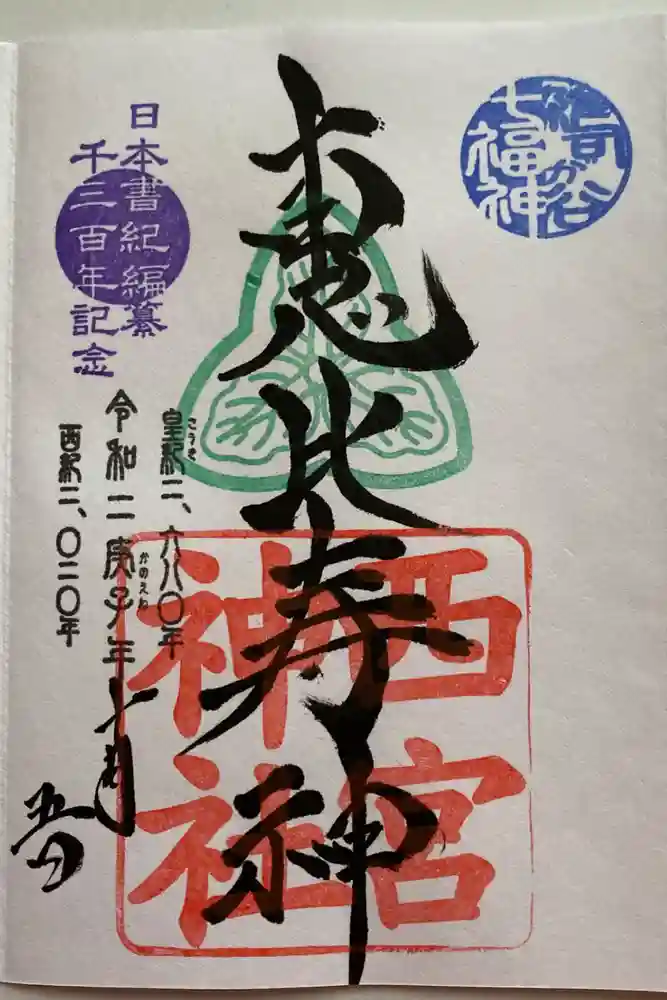 七福神
恵比寿神
西宮
神社
日本書紀編纂
千三百年記念
皇紀二、六八〇年
こうき
令和二庚子年
かのえね
五日
西紀二、〇二〇年